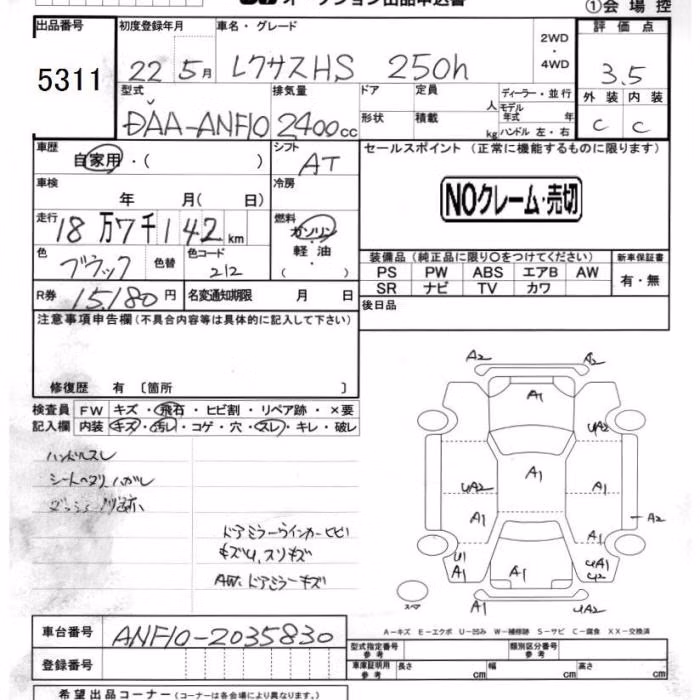 オークション出品申込書
①会場控
出品番号 初度登録年月 車名・グレード 2WD ・ 4WD 評価点
5311 22 5月 レクサスHS 250h 3.5
型式 排気量 ドア 定員 人 ディーラー・並行 外装 内装
DAA-ANF10 2400cc 形状 積載 kg モデル年式 年 ハンドル 左・右 C C
車歴 自家用・( ) シフト AT セールスポイント (正常に機能するものに限ります)
車検 年 月( 日) 冷房
NOクレーム・売切
走行 18万7千142km 燃料 ガソリン・軽油・( )
色 ブラック 色替 色コード 212 装備品 (純正品に限り○をつけてください) 新車保証書
PS PW ABS エアB AW 有・無
SR ナビ TV カワ
R券 15,180円 名変通知期限 月 日 後日品
注意事項申告欄 (不具合内容等は具体的に記入して下さい)
修復歴 有 〔箇所 〕
検査員 FW キズ・飛石・ヒビ割・リペア跡・×要
記入欄 内装 キズ・汚レ・コゲ・穴・スレ・キレ・破レ
ハンドルスレ
シートヘタリ ハガレ
ドアミラーウインカーヒビ
キズU,スリキズ
AW.ドアミラーキズ
A2 A2
A1
A1 UA2
UA2 A1 A1
A1 A1 A2
U1 A1 A1 UA1 U2
スペア A1 UA2
A-キズ E-エクボ U-凹み W-補修跡 S-サビ C-腐食 XX-交換済
車台番号 ANF10-2035830 型式指定番号 参考 類別区分番号 参考
登録番号 車庫証明用 参考 長さ cm 幅 cm 高さ cm
希望出品コーナー (コーナーは各会場により異なります。)